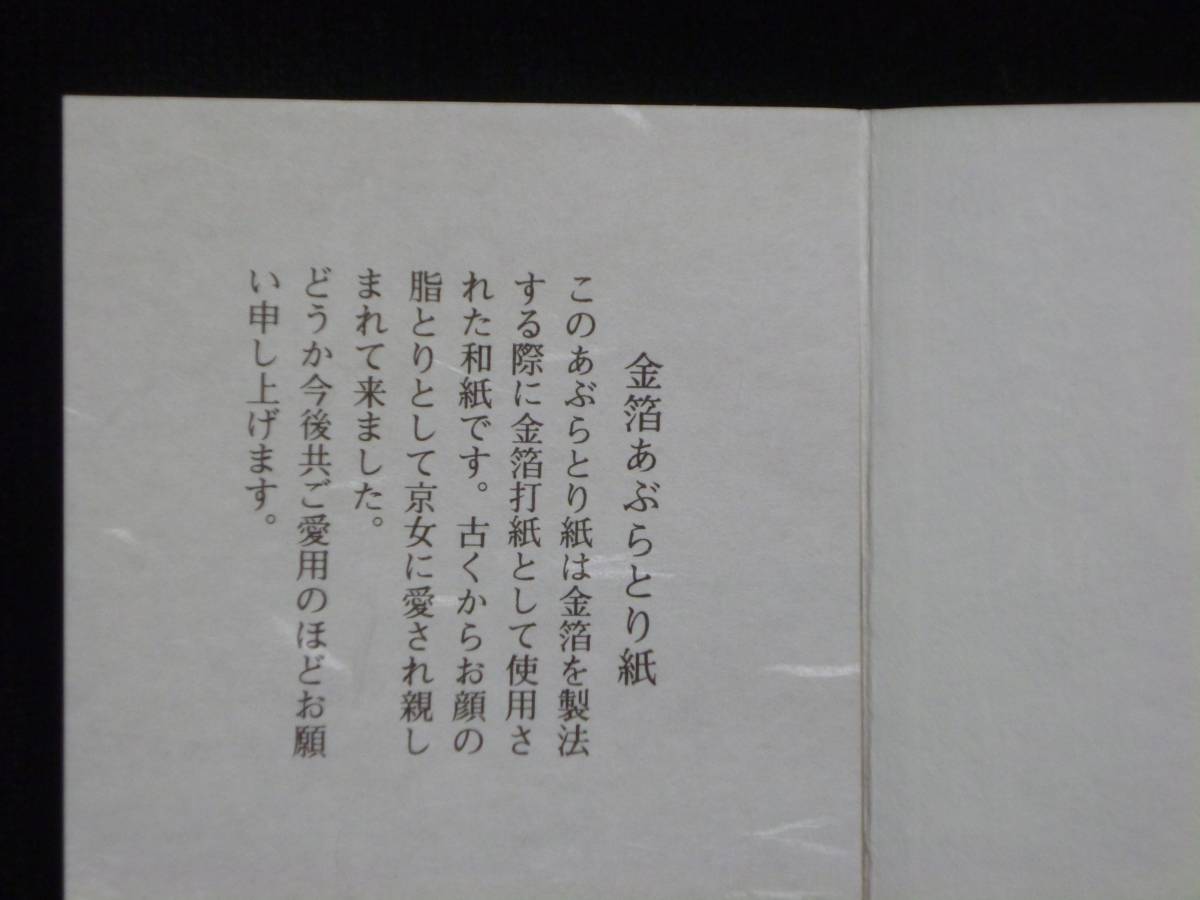 金箔あぶらとり紙
このあぶらとり紙は金箔を製法
する際に金箔打紙として使用さ
れた和紙です。古くからお顔の
脂とりとして京女に愛され親し
まれて来ました。
どうか今後共ご愛用のほどお願
い申し上げます。